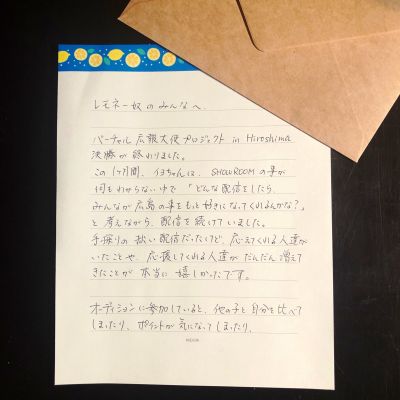 レモネー奴のみんなへ
バーチャル広報大使プロジェクト in Hiroshima
決勝が終わりました。
この1ヶ月間、イヨちゃんは、SHOWROOMの事が
何もわからない中で「どんな配信をしたら、
みんなが広島の事をもっと好きになってくれるんかな?」
と考えながら、配信を続けていました。
手探りの拙い配信だったけど、応えてくれる人達が
いたことや、応援してくれる人達がだんだん増えて
きたことが本当に嬉しかったです。
オーディションに参加していると、他の子と自分を比べて
しまったり、ポイントが気になってしまったり、